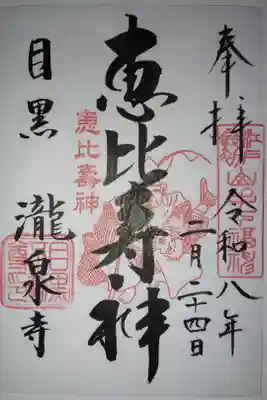 奉拝
令和八年
二月二十四日
恵比寿神
恵比壽神
目黒
瀧泉寺